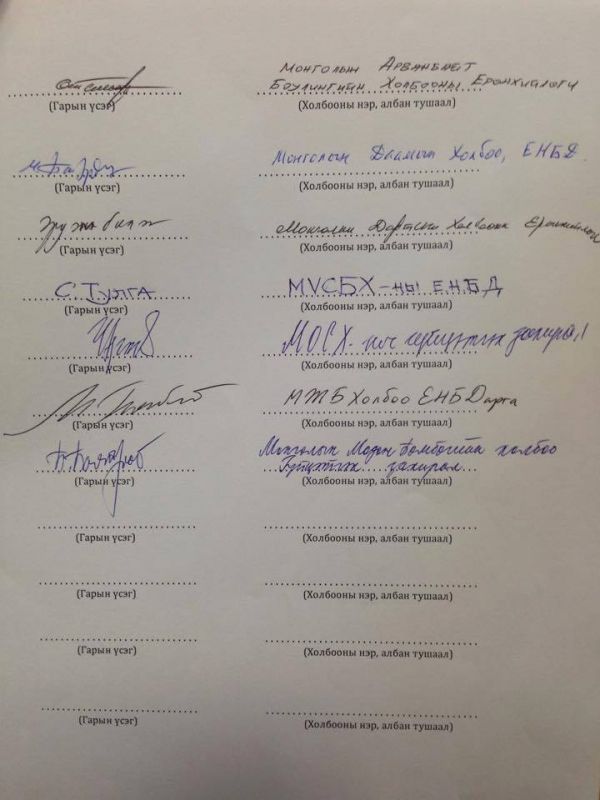 Монголын Арванбмёт
Боулингийн Холбооны Ерөнхийлөгч
(Гарын үсэг) (Холбооны нэр, албан тушаал)
Монголын Даамын Холбоо, ЕНБД
(Гарын үсэг) (Холбооны нэр, албан тушаал)
Дартсын Холбооны
(Гарын үсэг) (Холбооны нэр, албан тушаал)
С Тулга МУСБХ-ны ЕНБД
(Гарын үсэг) (Холбооны нэр, албан тушаал)
МОСХ-ны гүйцэтгэх захирал
(Гарын үсэг) (Холбооны нэр, албан тушаал)
МЖБ Холбоо ЕНБДарга
(Гарын үсэг) (Холбооны нэр, албан тушаал)
Монголын Модон Бөмбөгийн холбоо
Гүйцэтгэх захирал
(Гарын үсэг) (Холбооны нэр, албан тушаал)
(Гарын үсэг) (Холбооны нэр, албан тушаал)
(Гарын үсэг) (Холбооны нэр, албан тушаал)
(Гарын үсэг) (Холбооны нэр, албан тушаал)
(Гарын үсэг) (Холбооны нэр, албан тушаал)